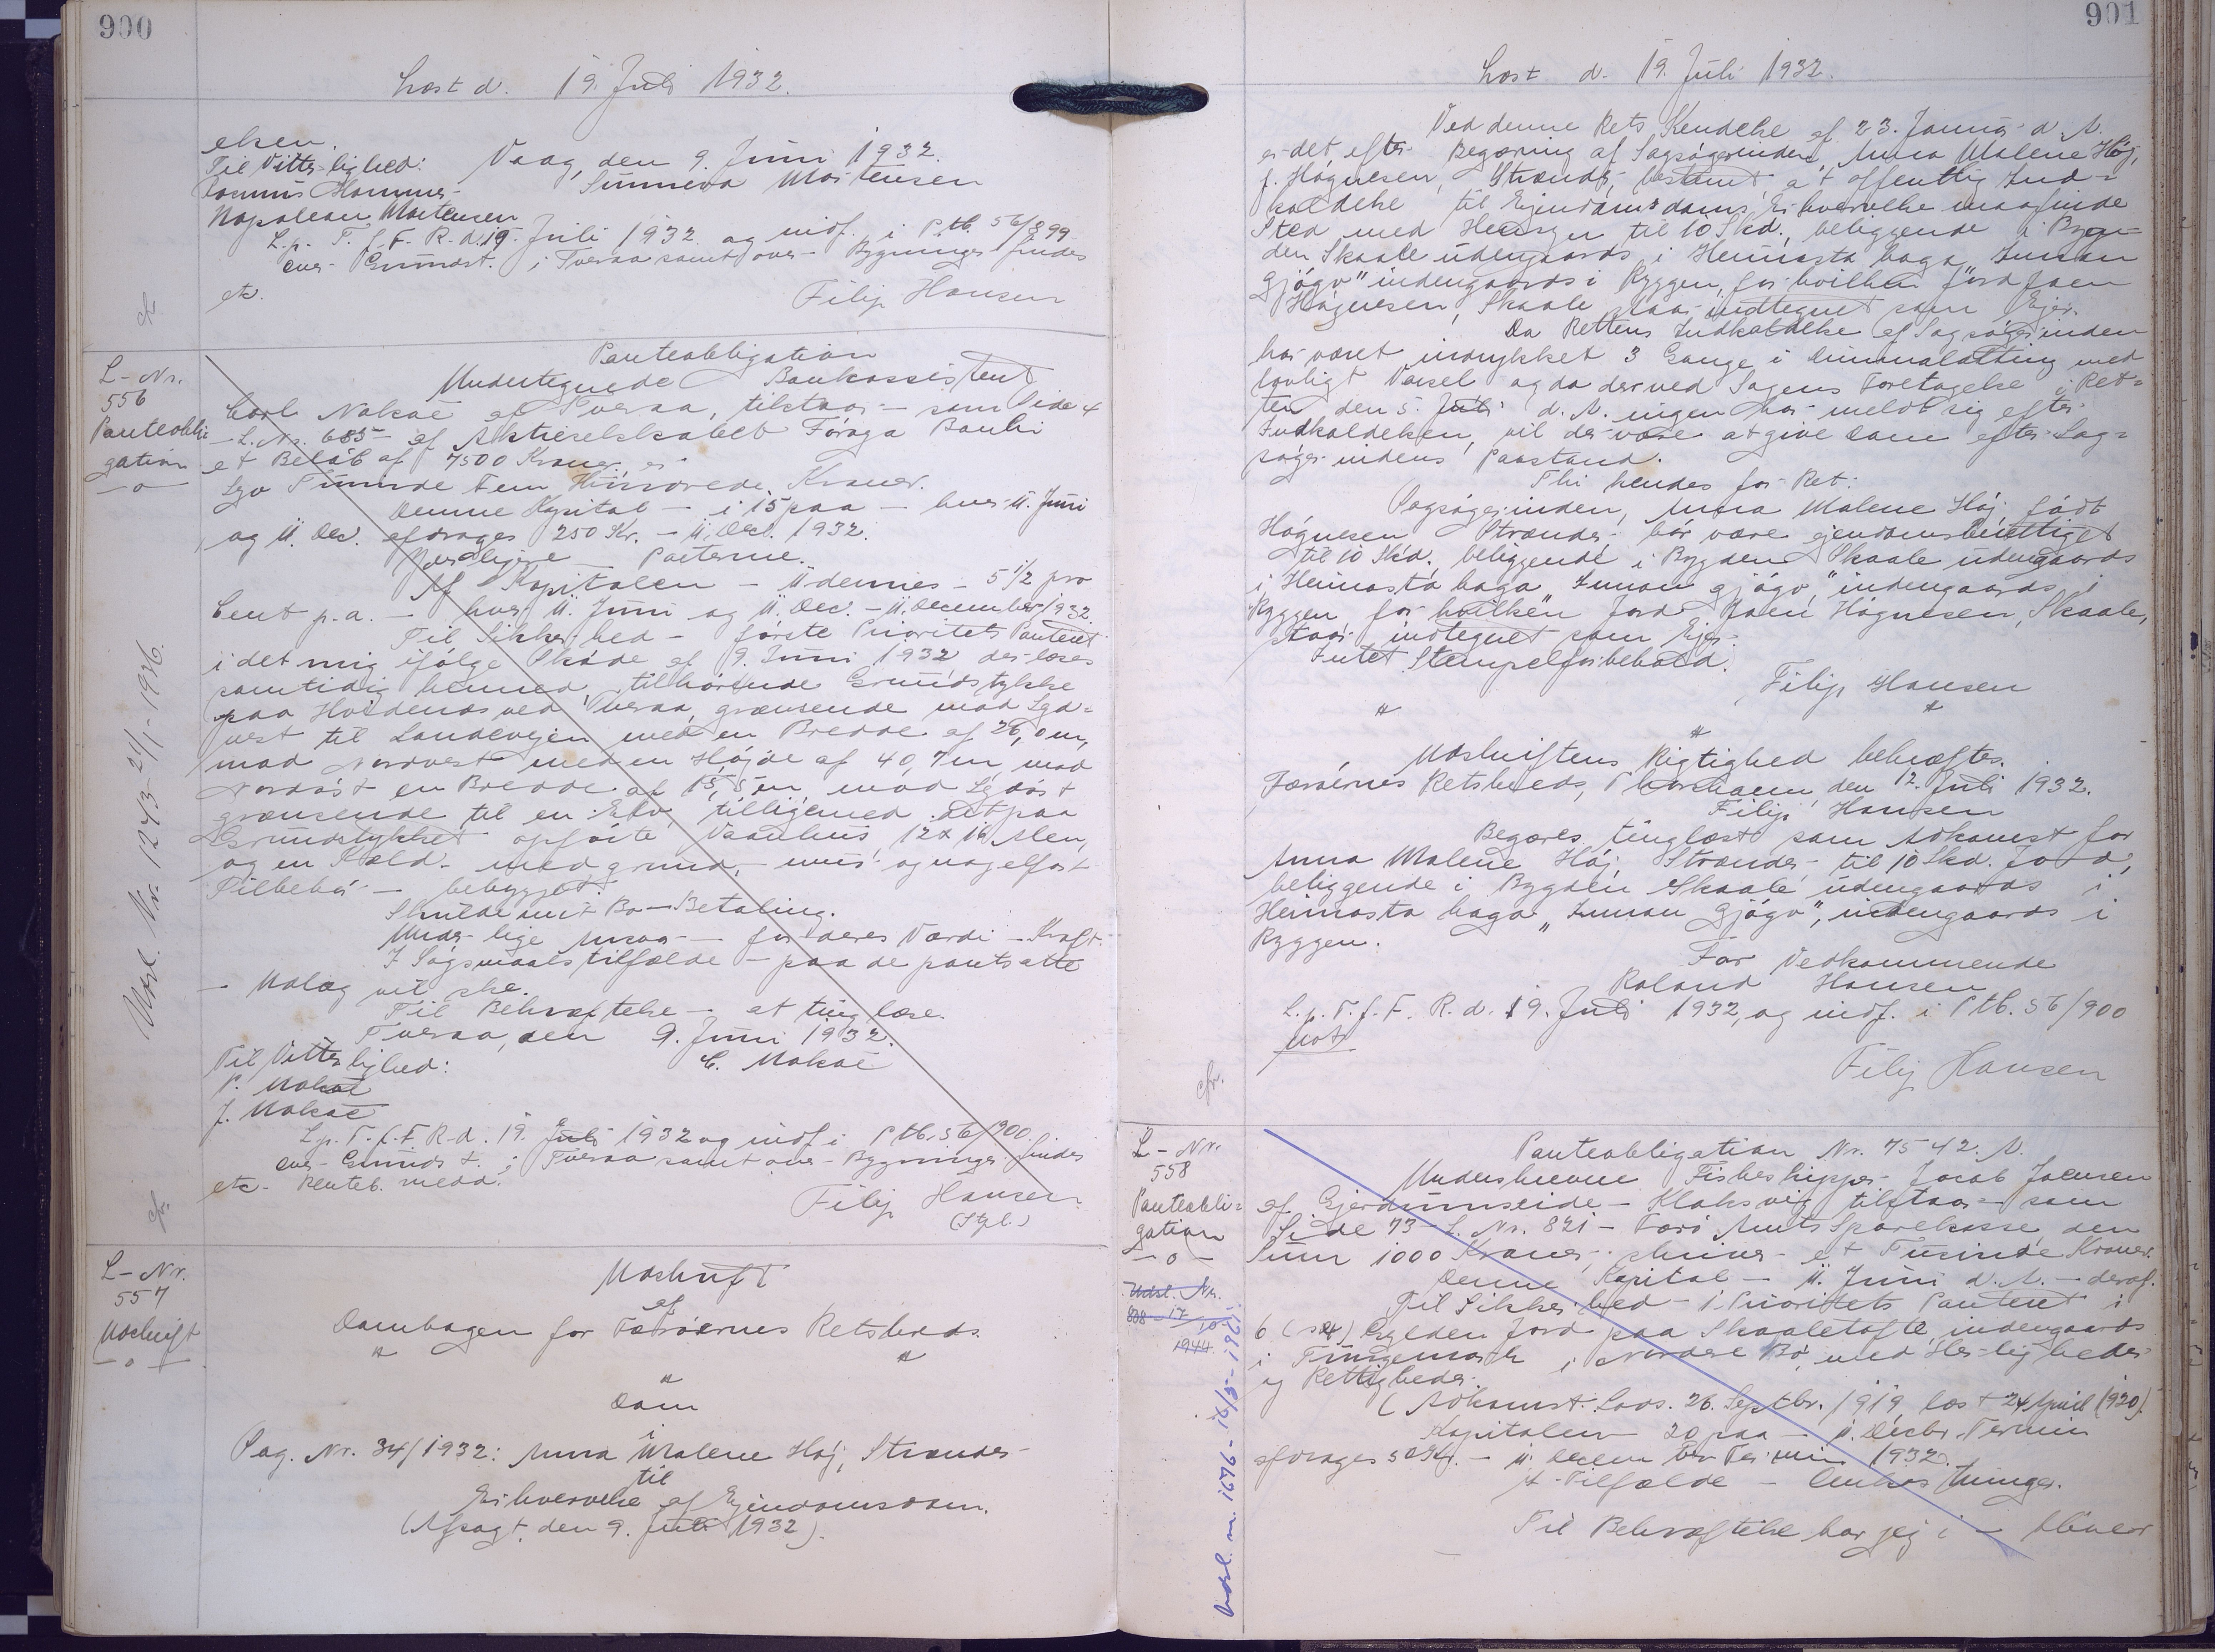 900
Læst d. 19. Juli 1932.
elsen.
Til Vitterlighed: Vaag, den 9. Juni 1932.
Hammer Sunneva Mortensen
Napolean Mortensen
L. p. T. f. F. R. d. 19. Juli 1932 og indf. i Ptb. 56/899
over Grundst. i Tveraa samt over Bygninger findes
etc.
Filip Hansen
L-Nr.
556
Panteobli
gation
-o-
Udsl. Nr. 1243 - 21/1 - 1936.
Panteobligation
Undertegnede Bankassistent
Carl Nolsøe af Tveraa, tilstaar - som Side 4
- L. Nr. 685 - af Aktieselskabet Føroya Banki
et Beløb af 7500 Kroner er
Syv Tusinde Fem Hundrede Kroner.
Denne Kapital - i 15 paa - hver 11. Juni
og 11. Dec. afdrages 250 Kr. - 11. Dec. 1932.
Yderligere - Parterne.
Af Kapitalen - udennes - 5 1/2 pro
Cent p. a. - hver 11. Juni og 11. Dec. - 11. December 1932.
Til Sikkerhed - første Prioritets Panteret
i det mig ifølge Skøde af 9. Juni 1932, der læses
samtidig hermed, tilhørende Grundstykke
paa Hvidenæs ved Tveraa, grænsende mod Syd-
vest til Landevejen med en Bredde af 26,0 m,
mod Nordvest med en Højde af 40,7 m, mod
Nordøst en Bredde af 15,5 m, mod Sydøst
grænsende til en Elv, tilligemed det paa
Grundstykket opførte Vaanhus, 12 x 16 Alen,
og en Kæld. med grund-, mur- og nagelfast
Tilbehør - bebygget.
Skulde mit Bo - Betaling.
Under lige Ansvar - for deres Værdi - Kraft.
I Søgsmaalstilfælde - paa de pantsatte
- Udlæg vil ske.
Til Bekræftelse - at tinglæse.
Tveraa, den 9. Juni 1932.
Til Vitterlighed: C. Nolsøe
P. Nolsøe
J. Nolsøe
L. p. T. f. F. R. d. 19. Juli 1932 og indf. i Ptb. 56/900.
over Grundst. i Tveraa samt over Bygninger findes
etc. Renteb. medd.
Filip Hansen
(Stpl.)
L-Nr.
557
Udskrift
-o-
Udskrift
af
Dombogen for Færøernes Retskreds.
Dom
i
Sag. Nr. 34/1932: Anna Malene Høj, Strænder
til
Erhvervelse af Ejendomsdom.
(Afsagt den 9. Juli 1932).
901
Læst d. 19. Juli 1932.
Ved denne Rets Kendelse af 23. Januar d. A.
er det efter Begæring af Sagsøgerinden, Anna Malene Høj,
f. Høgnesen, Strænder, bestemt, at offentlig Ind-
kaldelse til Ejendomsdoms Erhvervelse maa finde
Sted med Hensyn til 10 Skd., beliggende i Bygd-
den Skaale udengaards i Heimasta haga, "Innan
gjógv" indengaards i Ryggen, for hvilken Jord Joen
Høgnesen, Skaale staar indtegnet som Ejer.
Da Rettens Indkaldelse af Sagsøgerinden
har været indrykket 3 Gange i Dimmalætting med
lovligt Varsel og da der ved Sagens Foretagelse i Ret-
ten den 5. Juli d. A. ingen har meldt sig efter
Indkaldelsen, vil der være at give Dom efter Sag-
søgerindens Paastand.
Thi kendes for Ret:
Sagsøgerinden, Anna Malene Høj, født
Høgnesen, Strænder, bør være ejendomsberettiget
til 10 Skd. beliggende i Bygden Skaale udengaards
i Heimasta haga "Innan gjógv," indengaards i
Ryggen for hvilken Jord Joen Høgnesen, Skaale,
staar indtegnet som Ejer.
Intet Stempelforbehold.
Filip Hansen
Udskriftens Rigtighed bekræftes.
Færøernes Retskreds, Thorshavn, den 12. Juli 1932.
Filip Hansen
Begæres tinglæst som Adkomst for
Anna Malene Høj, Strænder, til 10 Skd. Jord,
beliggende i Bygden Skaale udengaards i
Heimasta haga "Innan gjógv", indengaards i
Ryggen.
For Vedkommende
Roland Hansen
L. p. T. f. F. R. d. 19. Juli 1932, og indf. i Ptb. 56/900
Filip Hansen
L-Nr.
558
Panteobli-
gation
-o-
Udsl. Nr.
1944
Udsl. m. 1676 - 16/5 - 1961.
Panteobligation Nr. 7542. A.
Underskrevne Fiskeskipper Jacob Joensen
af Gjerdumseide - Klaksvig tilstaar - som
Side 73 - L. Nr. 821 - Færø Amts Sparekasse, den
Sum 1000 Kroner, skriver et Tusinde Kroner.
Denne Kapital - 11. Juni d. A. - deraf.
Til Sikkerhed - 1. Prioritets Panteret i
6 Gylden Jord paa Skaaletofte indengaards
i i Nordre Bø, med Herligheder
og Rettigheder.
(Adkomst: Lavs. 26. Septbr. 1919 læst 24 April 1920).
Kapitalen - 20 paa - 11. Decbr. Termin
afdrages 50 Kr. - 11. December Termin 1932.
I Tilfælde -
Til Bekræftelse har jeg i - bliver